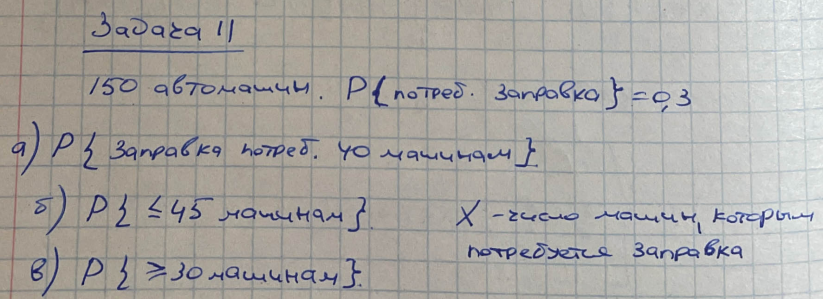 Задача 11
150 автомашин. P{потреб. заправка}=0,3
а) P{заправка потреб. 40 машинам}.
б) P{≤45 машинам}.
X - число машин, которым
потребуется заправка
в) P{≥30 машинам}.